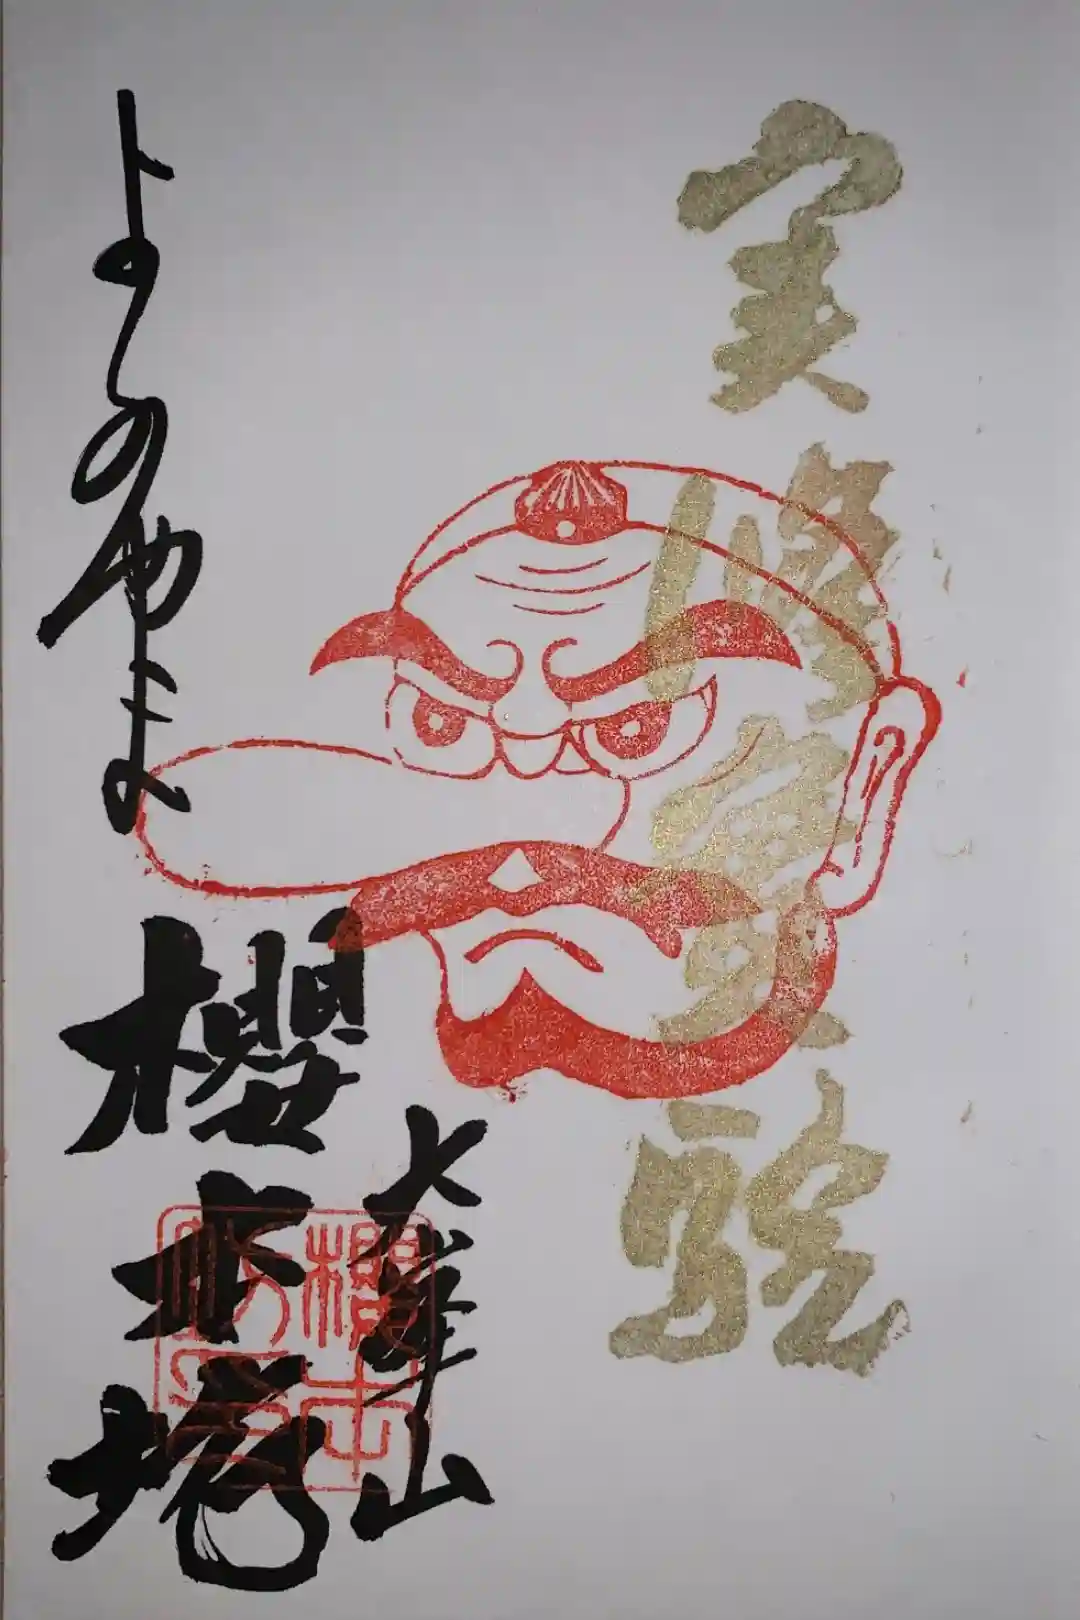 実修實験
大峯山
櫻本坊
よしのやま
櫻本
坊印